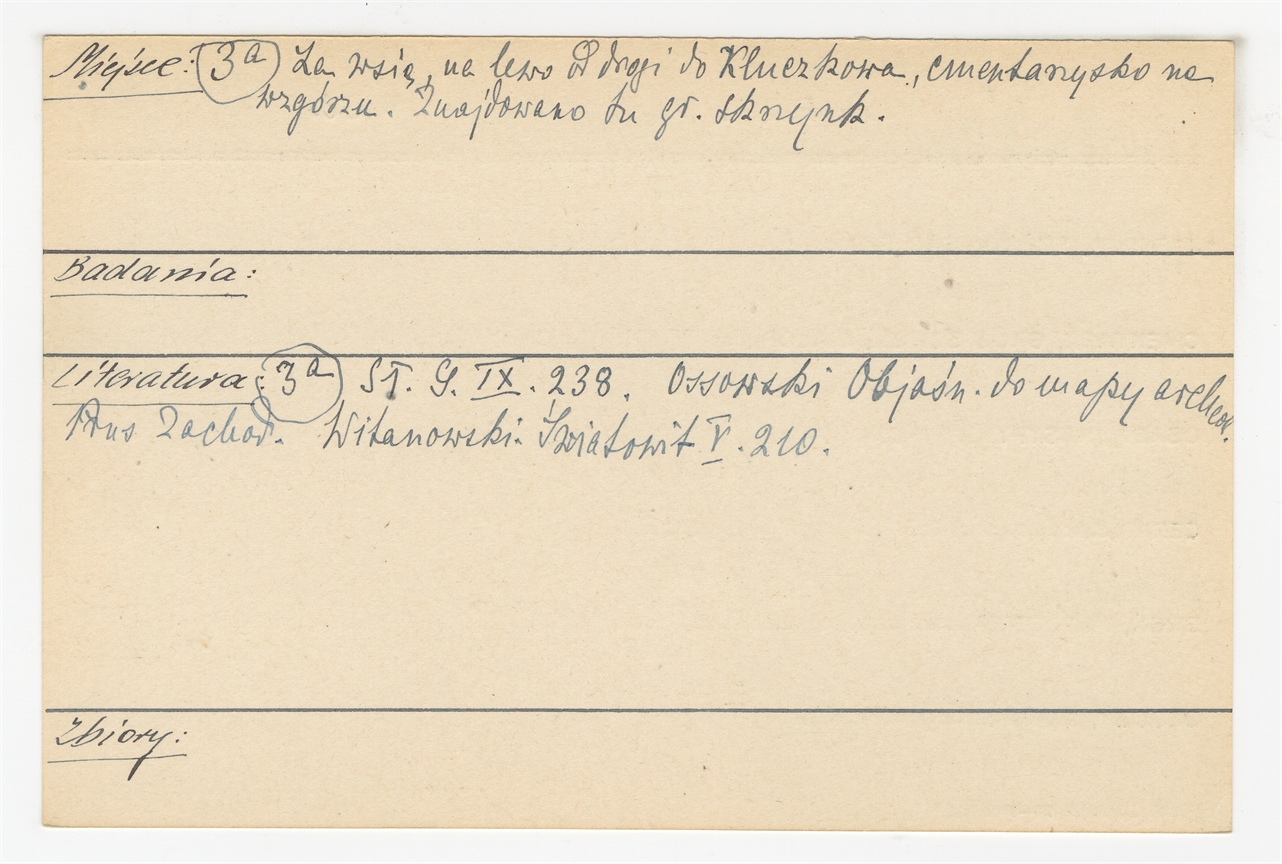 Miejsce: 3a Za wsią, na lewo od drogi do Kluczkowa, cmentarzysko na
wzgórzu. Znajdowano tu gr. skrzynk.
Badania:
Literatura: 3a Sł. G. IX. 238. Ossowski Objaśn. do mapy archeol.
Prus Zachod. Witanowski. Światowit V. 210.
Zbiory: